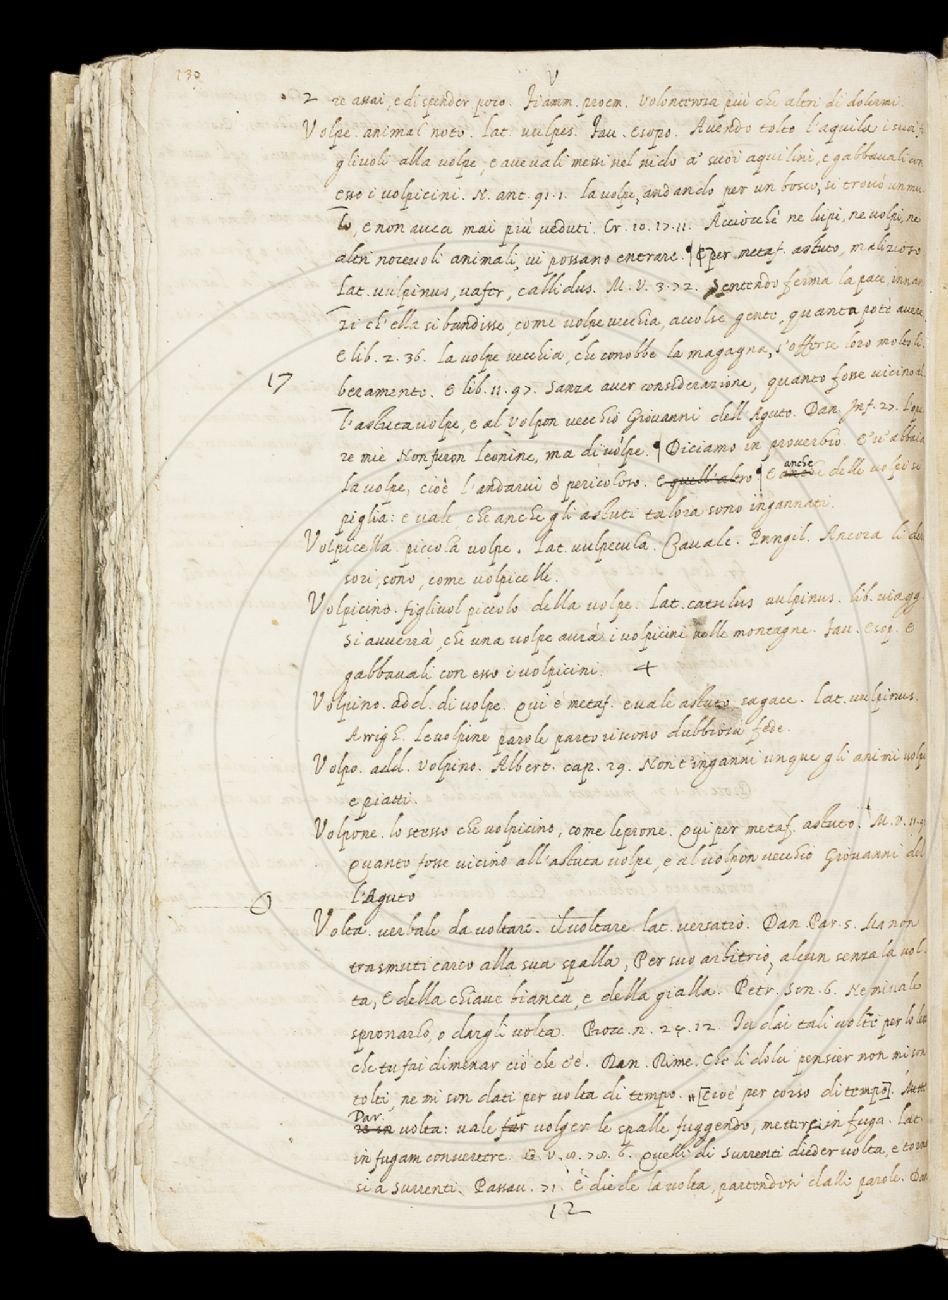 130
V
2 re assai, e di spender poco. Fiamm. proem. volonterosa piú che altri di dolermi.
Volpe. animal noto. Lat. vulpes. Fav. Esopo. Avendo tolto l'aquila i suoi fi
gliuoli alla volpe, e avevali messi nel nido a' suoi aquilini, e gabbavali con
esso i volpicini. N. ant. 91. 1. La volpe, andando per un bosco, si trovò un mu
lo, e non avea mai piú veduti. Cr. 10. 17. 11. Acciocchè ne lupi, ne volpi, ne
altri nocevoli animali, vi possano entrare. ¶ E per metaf. astuto, malizioso
Lat. vulpinus, vafer, callidus. M. V. 3. 72. Sentendo ferma la pace, innan
zi ch'ella si bandisse, come volpe vecchia, accolse gente, quanta potè avere.
E lib. 2. 36. La volpe vecchia, che conobbe la magagna, s'offerse loro molto li
17 beramente. E lib. 11. 97. Sanza aver considerazione, quanto fosse vicino al
l'astuta volpe, e al volpon vecchio Giovanni dell'Aguto. Dan. Inf. 27. L'ope
re mie Non furon leonine, ma di volpe. ¶ Diciamo in proverbio. E' v'abbaia
la volpe, cioè l'andarvi è pericoloso. E quell'altro ¶ E anche delle volpi si
anche
piglia: e vale che anche gli astuti talora sono ingannati.
Volpicella. piccola volpe. Lat. vulpecula. Cavalc. Pungil. Ancora li
sori, sono, come volpicelle.
Volpicino. figliuol piccolo della volpe. Lat. catulus vulpinus. lib. viagg
si avverrà, che una volpe avrà i volpicini nelle montagne. Fav. Esop. E
gabbavali con esso i volpicini. +
Volpino. add. di volpe. Qui è metaf. e vale astuto sagace. Lat. vulpinus.
Arrigh. Le volpine parole partoriscono dubbiosa fede.
Volpo. add. volpino. Albert. cap. 29. Non t'inganni unque gli animi volpi
e piatti.
Volpone. lo stesso che volpicino, come leprone. Qui per metaf. astuto. M. V. 11. 9
Quanto fosse vicino all'astuta volpe, e al volpon vecchio Giovanni del
l'Aguto
Volta. verbale da voltare. il voltare. Lat. versatio. Dan. Par. 5. Ma non
trasmuti carco alla sua spalla, Per suo arbitrio, alcun senza la vol
ta, E della chiave bianca, e della gialla. Petr. Son. 6. Ne mi vale
spronarlo, o dargli volta. Bocc. n. 24. 12. Tu dai tali volte per lo letto
che tu fai dimenar ciò che c'è. Dan. Rime. Che li dolci pensier non mi son
tolti, ne mi son dati per volta di tempo. [cioè per corso di tempo].
Dar
volta: vale far volger le spalle fuggendo, mettersi in fuga. Lat.
in fugam convertere. G. V. 10. 70. 6. Quelli di Surrenti dieder volta, e torna
si a Surrenti. Passav. 71. E diede la volta, partendosi dalle parole. Dan
12